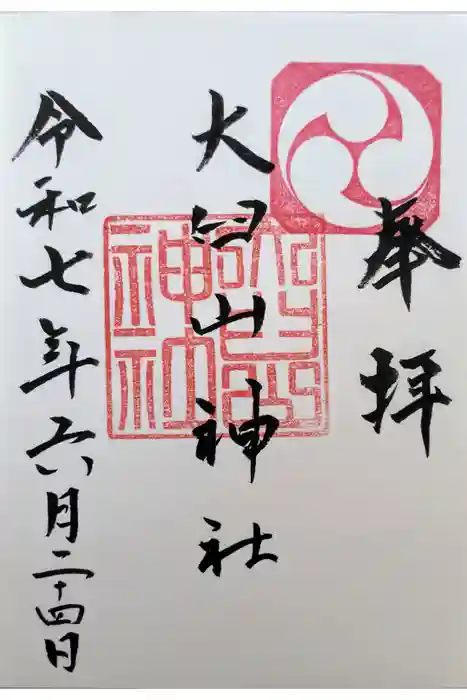 奉拝
大臼山神社
令和七年六月二十四日